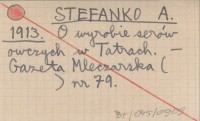 STEFANKO A.
1913. O wyrobie serów
owczych w Tatrach. —
Gazeta Mleczarska (
) nr 79.